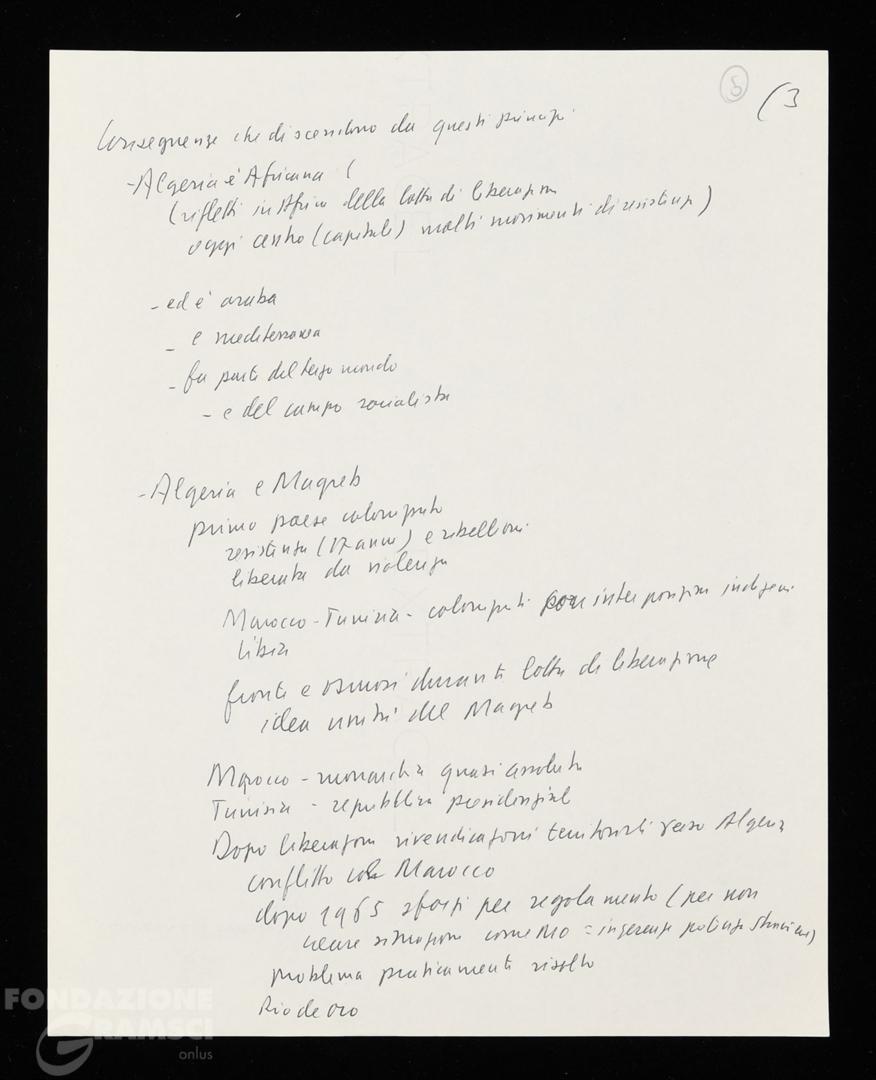 5
(3
Conseguenze che discendono da questi principi
- Algeria è Africana (
(riflessi in Africa della lotta di liberazione
oggi centro (capitale) molti movimenti di resistenza)
- ed è araba
- e mediterranea
- fa parte del terzo mondo
- e del campo socialista
- Algeria e Magreb
primo paese colonizzato
resistenza (17 anni) e ribellioni
liberata da violenza
Marocco - Tunisia - colonizzati con interposizione indigeni
Libia
fronte e osmosi durante lotta di liberazione
idea unità del Magreb
Marocco - monarchia quasi assoluta
Tunisia - repubblica presidenziale
Dopo liberazione rivendicazioni territoriali verso Algeria
conflitto col Marocco
dopo 1965 sforzi per regolamento (per non
creare situazione come MO = ingerenze potenze straniere)
problema praticamente risolto
Rio de oro
FONDAZIONE
GRAMSCI
onlus